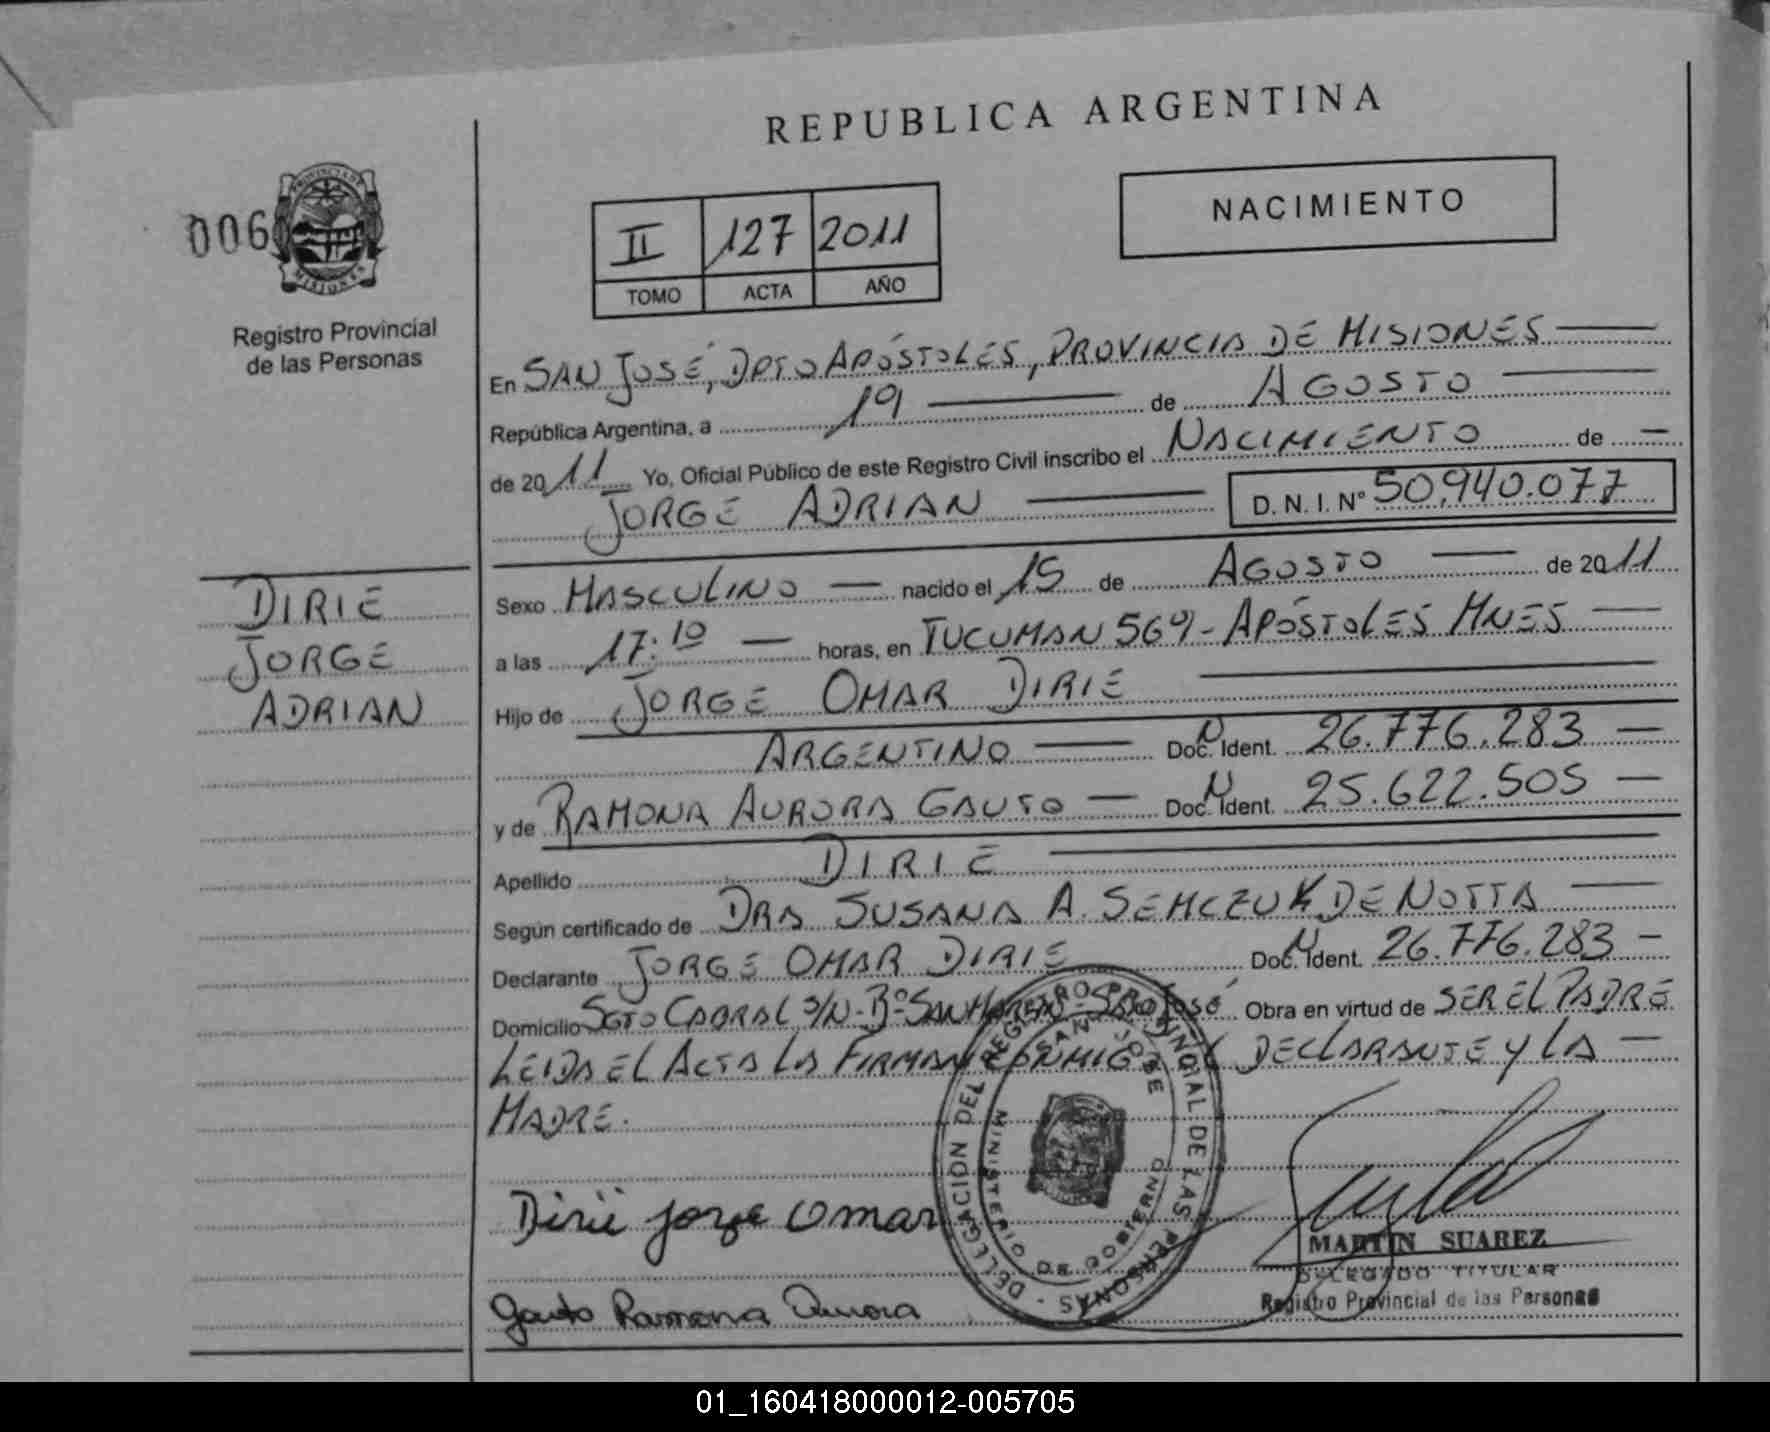 REPUBLICA ARGENTINA
006
PROVINCIA DE
MISIONES
Registro Provincial
de las Personas
II 127 2011
TOMO ACTA AÑO
NACIMIENTO
En SAN JOSÉ, DPTO APÓSTOLES, PROVINCIA DE MISIONES
República Argentina, a 19 de AGOSTO
de 2011 Yo, Oficial Público de este Registro Civil inscribo el NACIMIENTO de
JORGE ADRIAN D. N. I. Nº 50.940.077
DIRIE
JORGE
ADRIAN
Sexo MASCULINO nacido el 15 de AGOSTO de 2011
a las 17:10 horas, en TUCUMAN 569 - APÓSTOLES MNES
Hijo de JORGE OMAR DIRIE
ARGENTINO Doc. N Ident. 26.776.283
y de RAMONA AURORA GAUTO Doc. N Ident. 25.622.505
Apellido DIRIE
Según certificado de DRA SUSANA A. SEMCZUK DE NOTTA
Declarante JORGE OMAR DIRIE Doc. N Ident. 26.776.283
Domicilio SGTO CABRAL S/N - Bº SAN JOSÉ Obra en virtud de SER EL PADRE
LEIDA EL ACTA LA FIRMAN CONMIGO DECLARANTE Y LA
MADRE.
DELEGACION DEL REGISTRO PROVINCIAL DE LAS PERSONAS
SAN JOSE
MINISTERIO DE GOBIERNO
Dirie Jorge Omar
Gauto Ramona Aurora
MARTIN SUAREZ
DELEGADO TITULAR
Registro Provincial de las Personas
01_160418000012-005705